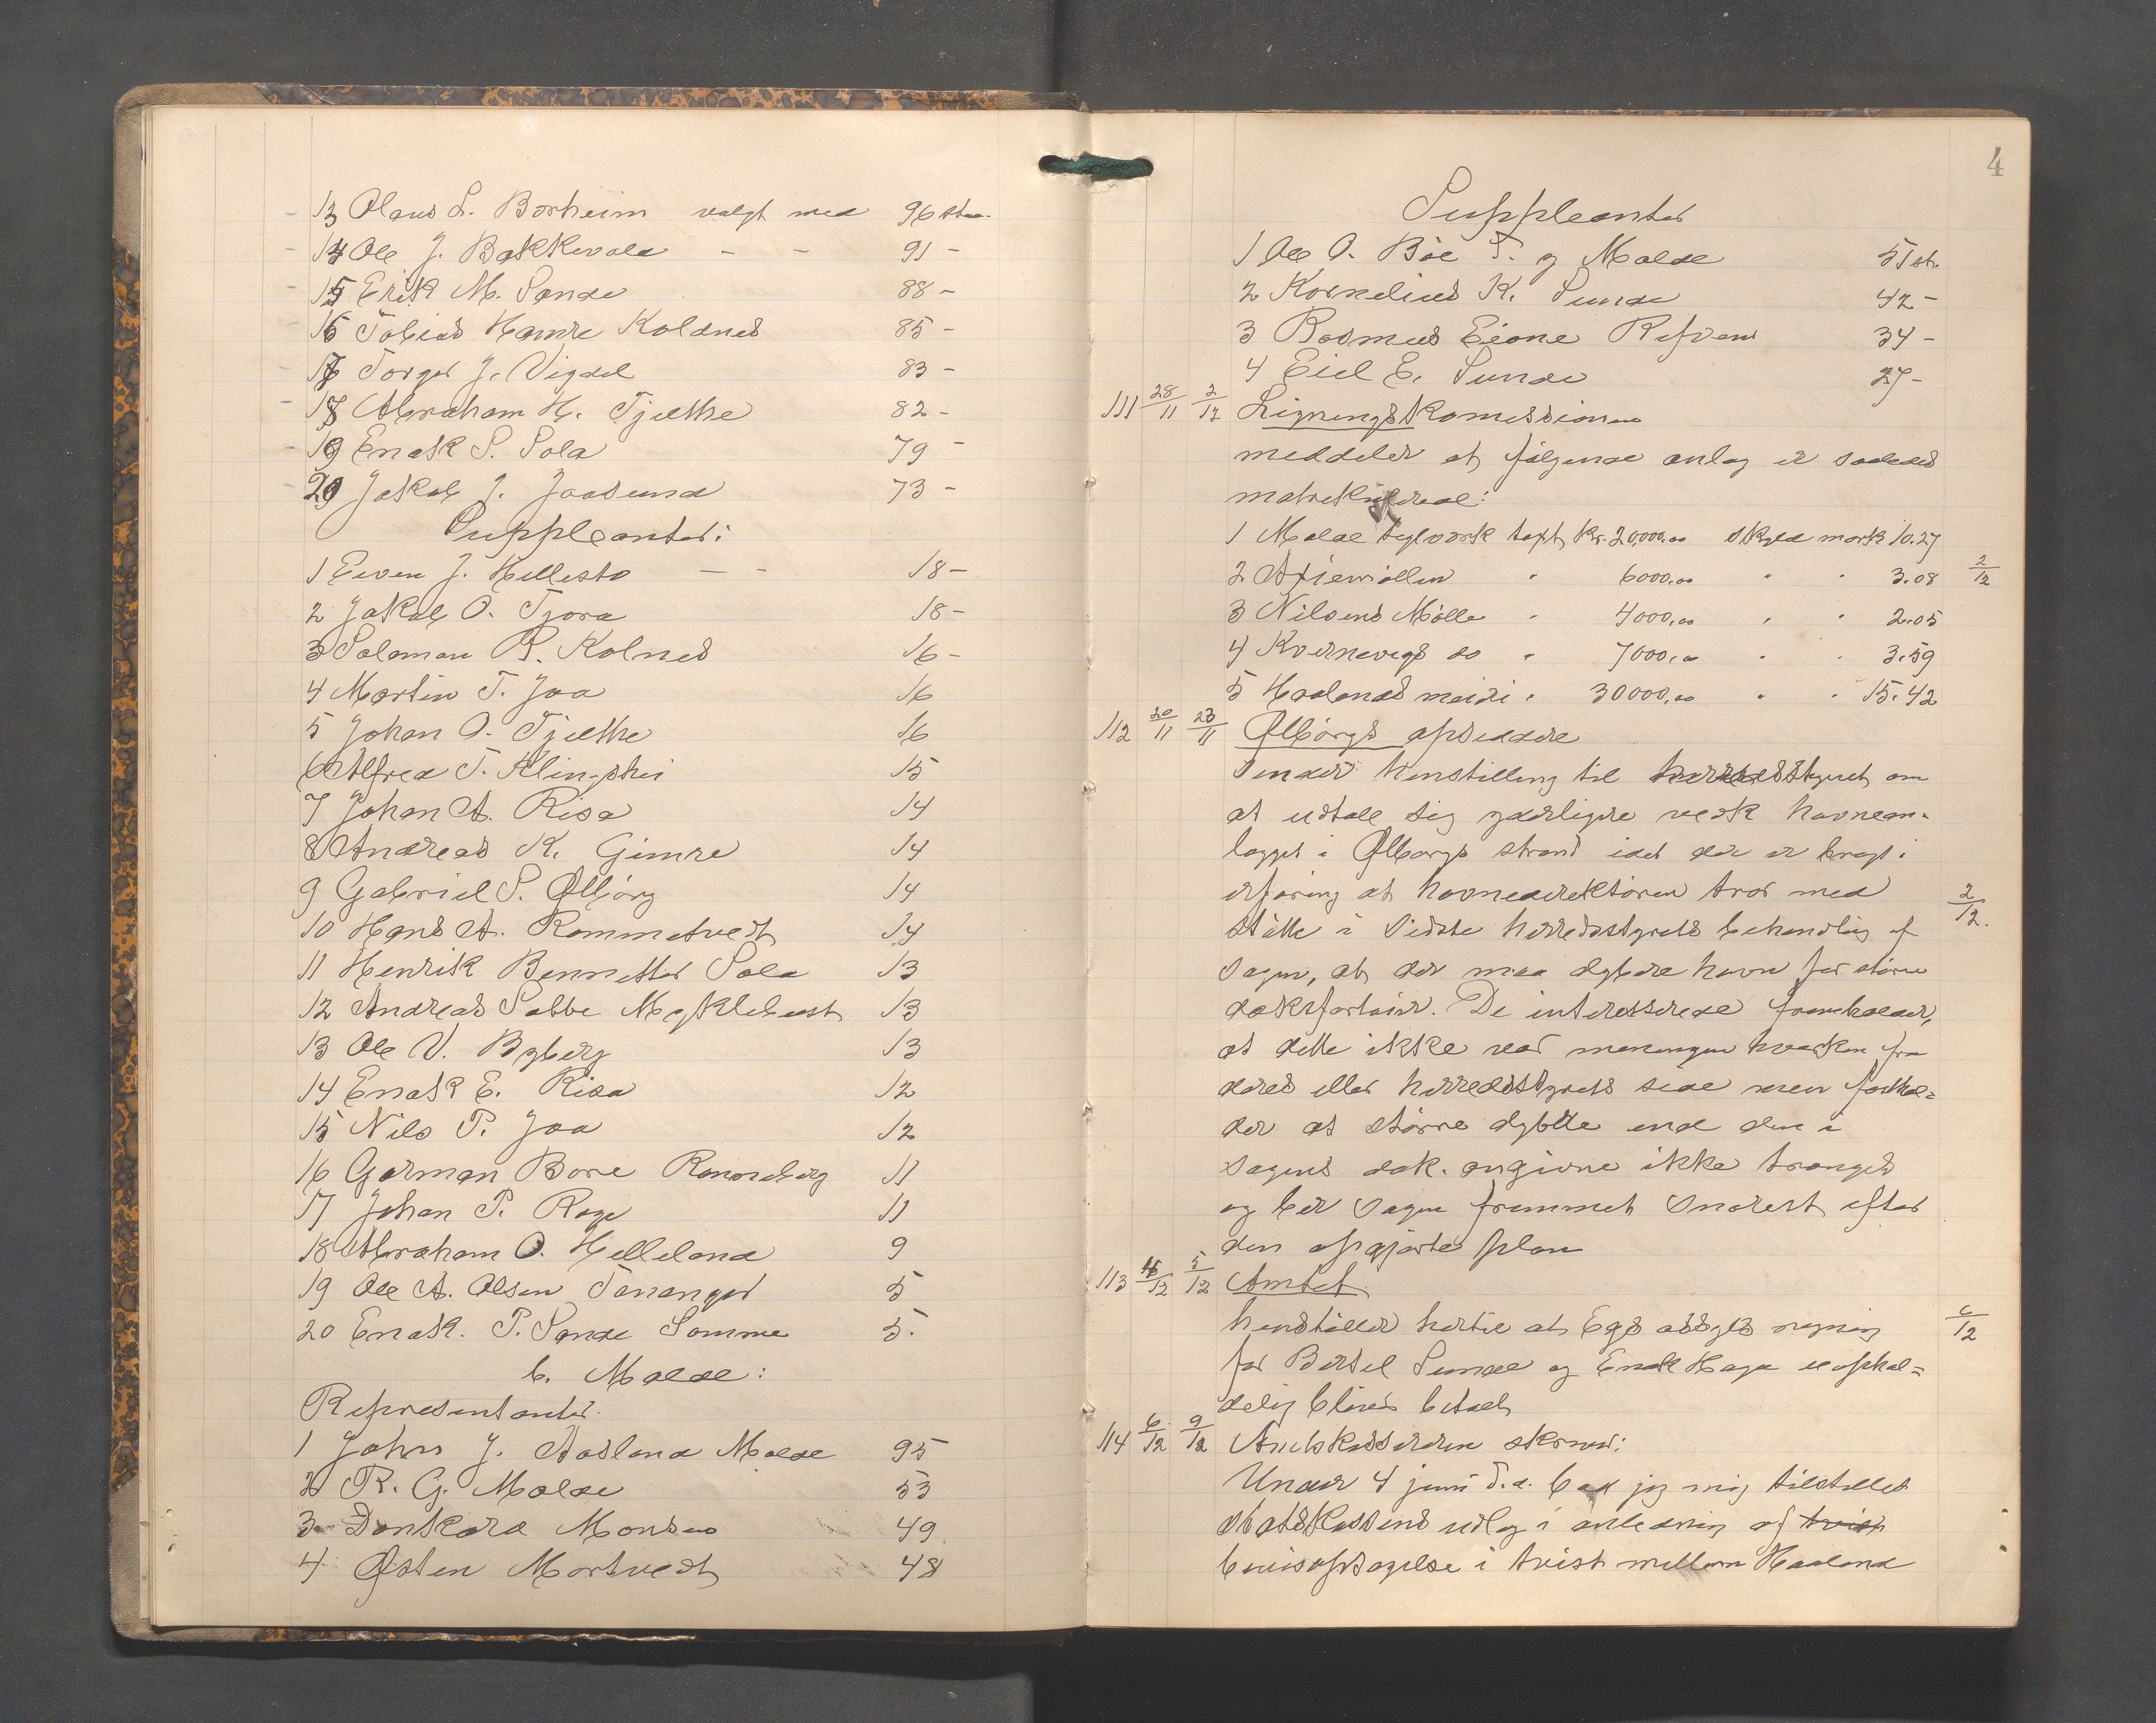 13 Olaus L. Borheim valgt med 96 ste.
14 Ole J. Bakkevold - - 91 -
15 Erik M. Sande 88 -
16 Tobias Hamre Koldnes 85 -
17 Torger J. Vigdel 83 -
18 Abraham H. Tjelthe 82 -
19 Enok S. Sola 79 -
20 Jakob J. Joasund 73 -
Suppleanter:
1 Even J. Hellestø - - 18 -
2 Jakob O. Tjora 18 -
3 Salomon R. Kolnes 16 -
4 Martin T. Joa 16
5 Johan O. Tjelthe 16
6 Alfred T. 15
7 Johan A. Risa 14
8 Andreas K. Gimre 14
9 Gabriel S. Ølbørg 14
10 Hans A. Rommetvedt 14
11 Henrik Bennetter Sola 13
12 Andreas Sabbe Myklebust 13
13 Ole V. Byberg 13
14 Enok E. Risa 12
15 Nils P. Joa 12
16 Gorman Bore 11
17 Johan P. Rege 11
18 Abraham O. Helleland 9
19 Ole A. Olsen Tananger 5
20 Enok. P. Sande Somme 5.
b. Malde:
Representanter.
1 John J. Aasland Malde 95
2 R. G. Malde 53
3 Monsen 49
4 Østen Mortvedt 48
4
Suppleanter
1 Ole O. Bøe T. g Malde 51 st.
2 Kornelius K. Sunde 42 -
3 Rasmus Eione Refvem 34 -
4 Eiel E. Sunde 27 -
111 28/11 2/12 Ligningskomissionen
meddeler at følgende anlæg er saaledes
matrikuleret:
1 Malde teglværk taxt Kr. 20,000.00 skyld mark 10.27
2 6000.00 " " 3.08 2/12
3 Nilsens Mølle " 4000.00 " " 2.05
4 Kvernevigs do " 7000.00 " " 3.59
5 Haalands meieri " 30000.00 " " 15.42
112 20/11 23/11 Ølbørgs opsiddere
sender henstilling til herredsstyret om
at udtale sig yderligere vedk havnean-
lægget i Ølbørgs strand idet der er bragt i
erfaring at havnedirektøren tror med
støtte i sidste herredsstyrets behandling af 2/12.
sagen, at der maa dybere havn for større
døksfartøier. De interesserede fremholder,
at dette ikke var meningen hverken fra
deres eller herredsstyrets side men forhol=
der at større dybde end den i
sagens dok. angivne ikke trænges
og ber sagen fremmet snarest efter
den opgjørte plan
113 4/12 5/12 Amtet
henstiller hertil at Egs asyls regning 6/12
for Bertel Sunde og Enok Haga uophol=
delig blive betalt
114 6/12 9/12 Amtskassereren skriver:
Under 4 juni d.a. bad jeg mig tilstillet
statskassens udlæg i anledning af tvist
bevisoptagelse i tvist mellem Haaland